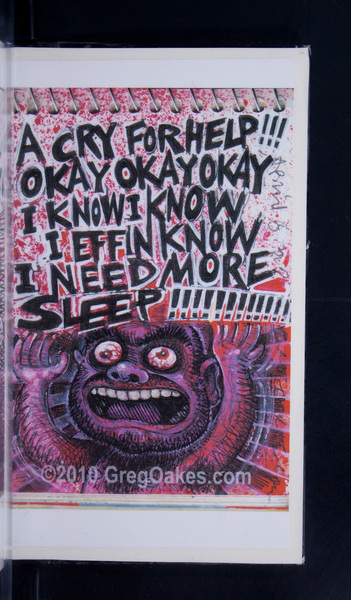 A CRY FOR HELP!!!
OKAY OKAY OKAY
I KNOW I KNOW
I EFFIN KNOW
I NEED MORE
SLEEP !!!!!!!!!!!!
©2010 GregOakes.com